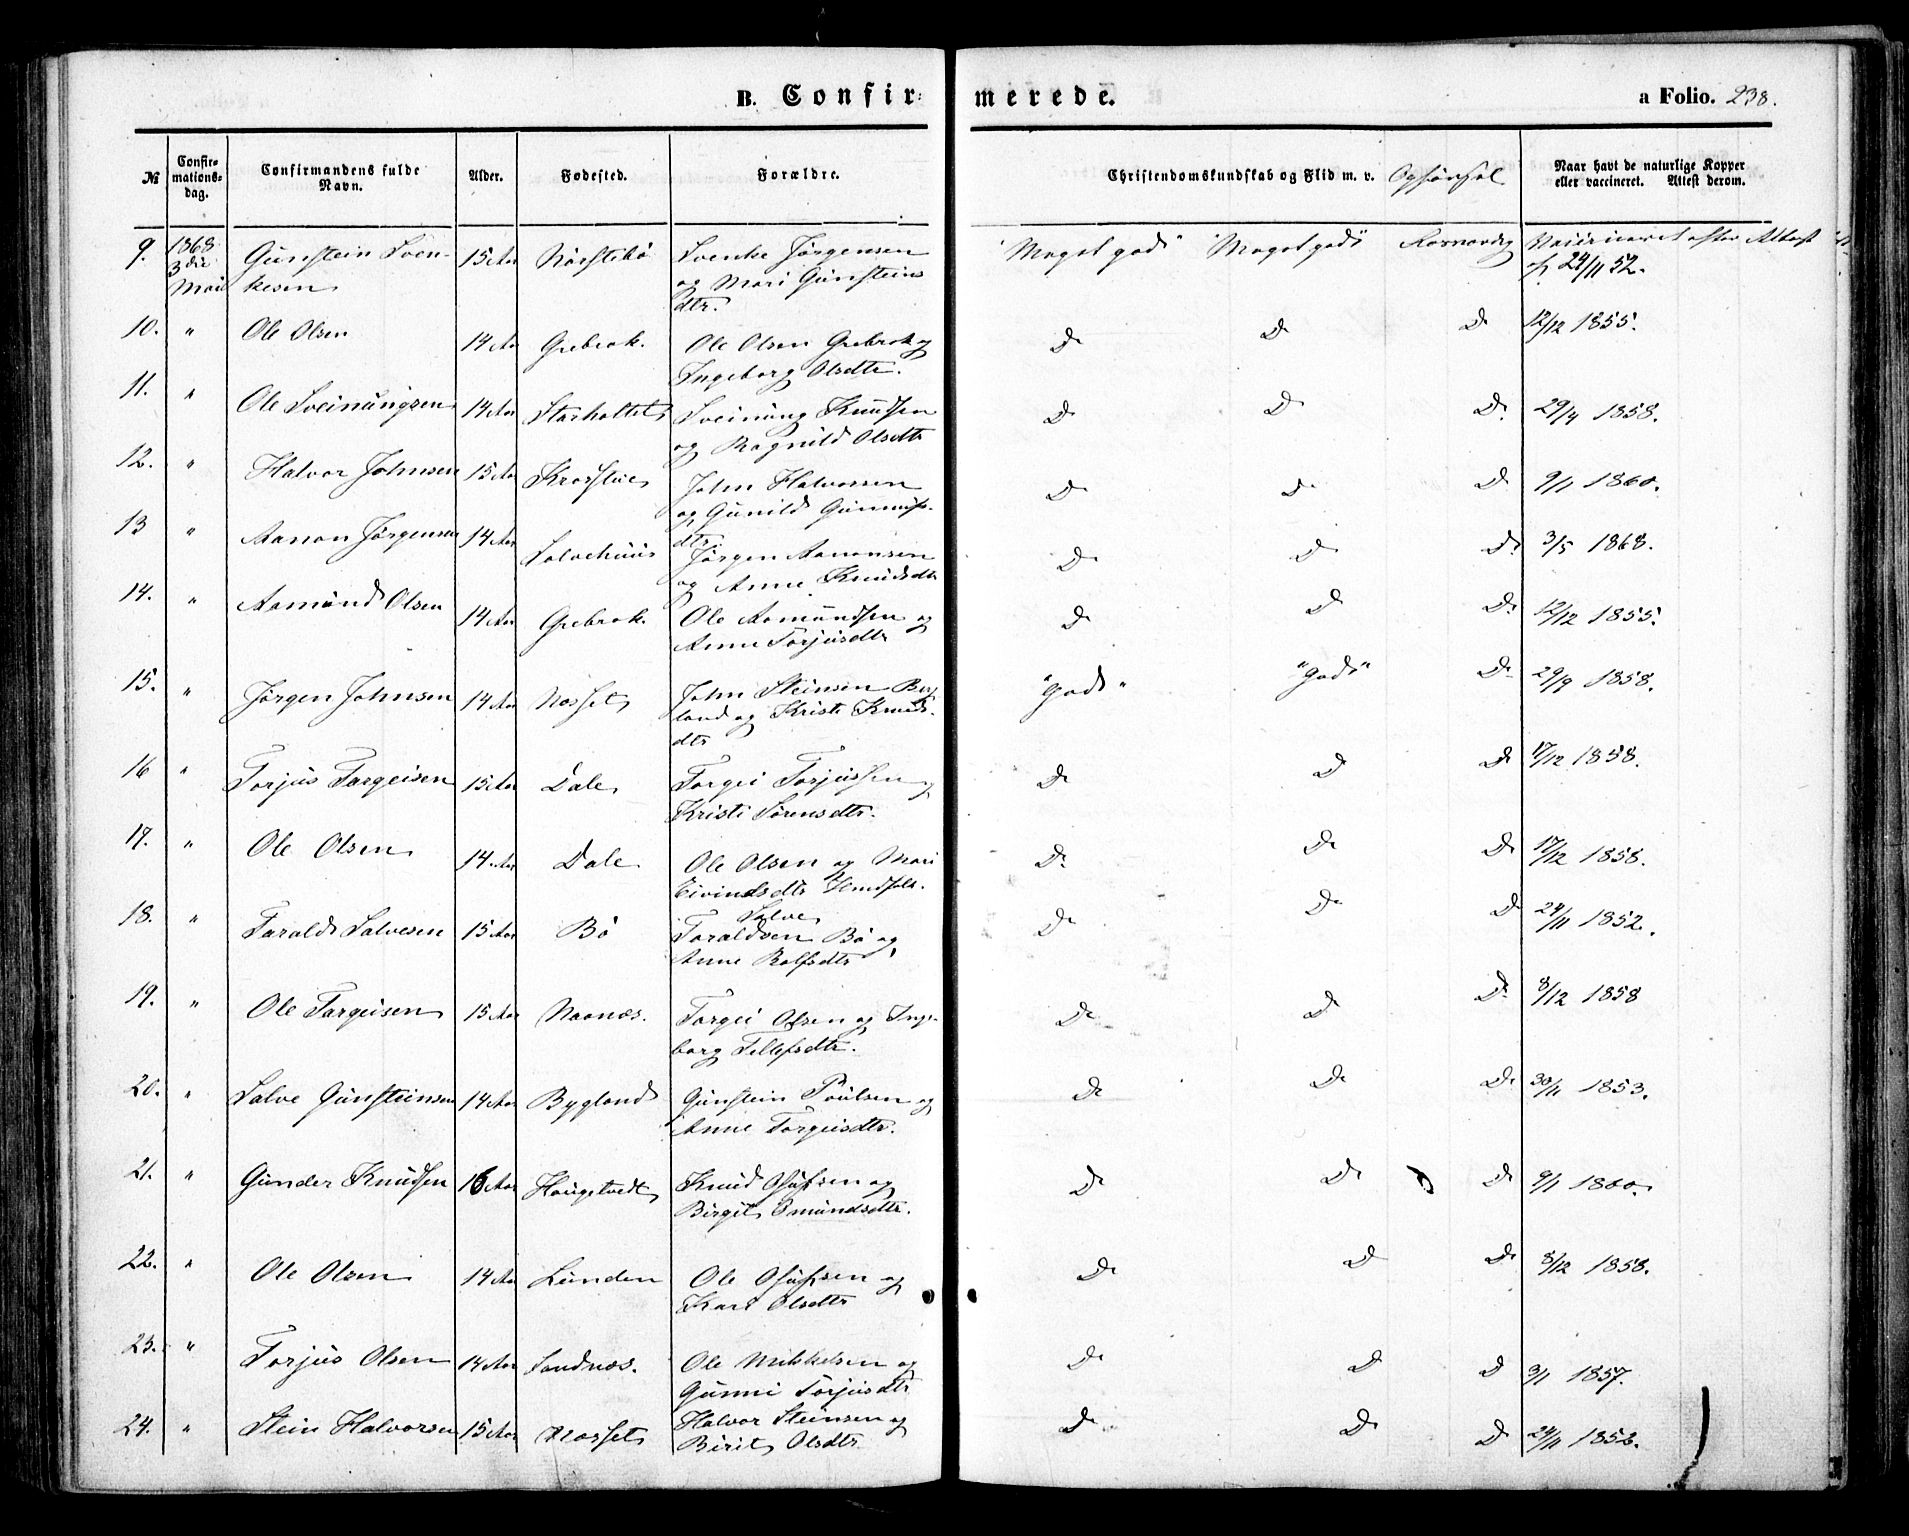 B. Confir- merede. a Folio. 238.
№ Confir-mations-dag. Confirmandens fulde Navn. Alder. Fødested. Forældre. Christendomskundskab og Flid m. v. Opførsel Naar havt de naturlige Kopper eller vaccineret. Attest derom.
9. 1868 Gunstein Sven- 15 Aar Norstebø Svenke Jørgensen "Meget godt" "Meget godt" Vaccineret efter Attest
3die Mai kesen og Mari Gunsteins af 24/11 52.
dtr.
10. " Ole Olsen 14 Aar Grebrok. Ole Olsen Grebrok og D. D. D. 12/12 1855.
Ingeborg Olsdtr.
11. " Ole Sveinungsen 14 Aar Sveinung Knudsen D. D. D. 29/9 1858.
og Ragnild Olsdtr
12. " Halvor Johnsen 15 Aar John Halvorsen D. D. D. 9/1 1860.
og Gunild
dtr.
13 " Aanon Jørgensen 14 Aar Salvehuus Jørgen Aanonsen D. D. D. 3/5 1868.
og Anne Knudsdtr
14. " Aamund Olsen 14 Aar Grebrok. Ole Aamundsen og D. D. D. 12/12 1855.
Anne Torjusdtr
15. " Jørgen Johnsen 14 Aar Nesset John Steinsen Byg- "godt" "godt" D. 29/9 1858.
land og Kristi Knuds-
dtr
16 " Torjus Targeisen 15 Aar Dale Torgei Torjussen og D. D. D. 17/12 1858.
Kristi Sørensdtr.
17. " Ole Olsen 14 Aar Dale Ole Olsen og Mari D. D. D. 17/12 1858.
Eivindsdtr
18. " Tarald Salvesen 15 Aar Bø Salve D. D. D. 24/11 1852.
Taraldsen Bø og
Anne Rolfsdtr
19. " Ole Targeisen 15 Aar Naanæs. Torgei Olsen og Inge- D. D. D. 8/12 1858
borg Tellefsdtr.
20. " Salve Gunsteinsen 14 Aar Bygland Gunstein Poulsen og D. D. D. 30/11 1853.
Anne Torgeisdtr.
21. " Gunder Knudsen 16 Aar Haugetvedt Knud Osufsen og D. D. D. 9/1 1860.
Birgit Omundsdtr.
22. " Ole Olsen 14 Aar Lunden Ole Osufsen og D. D. D. 8/12 1858.
Kari Olsdtr
23. " Torjus Olsen 14 Aar Sandnæs. Ole Mikkelsen og D. D. D. 3/1 1857.
Gunni Torjusdtr
24. " Stein Halvorsen 15 Aar Nesset Halvor Steinsen og D. D. D. 24/11 1852.
Birit Olsdtr